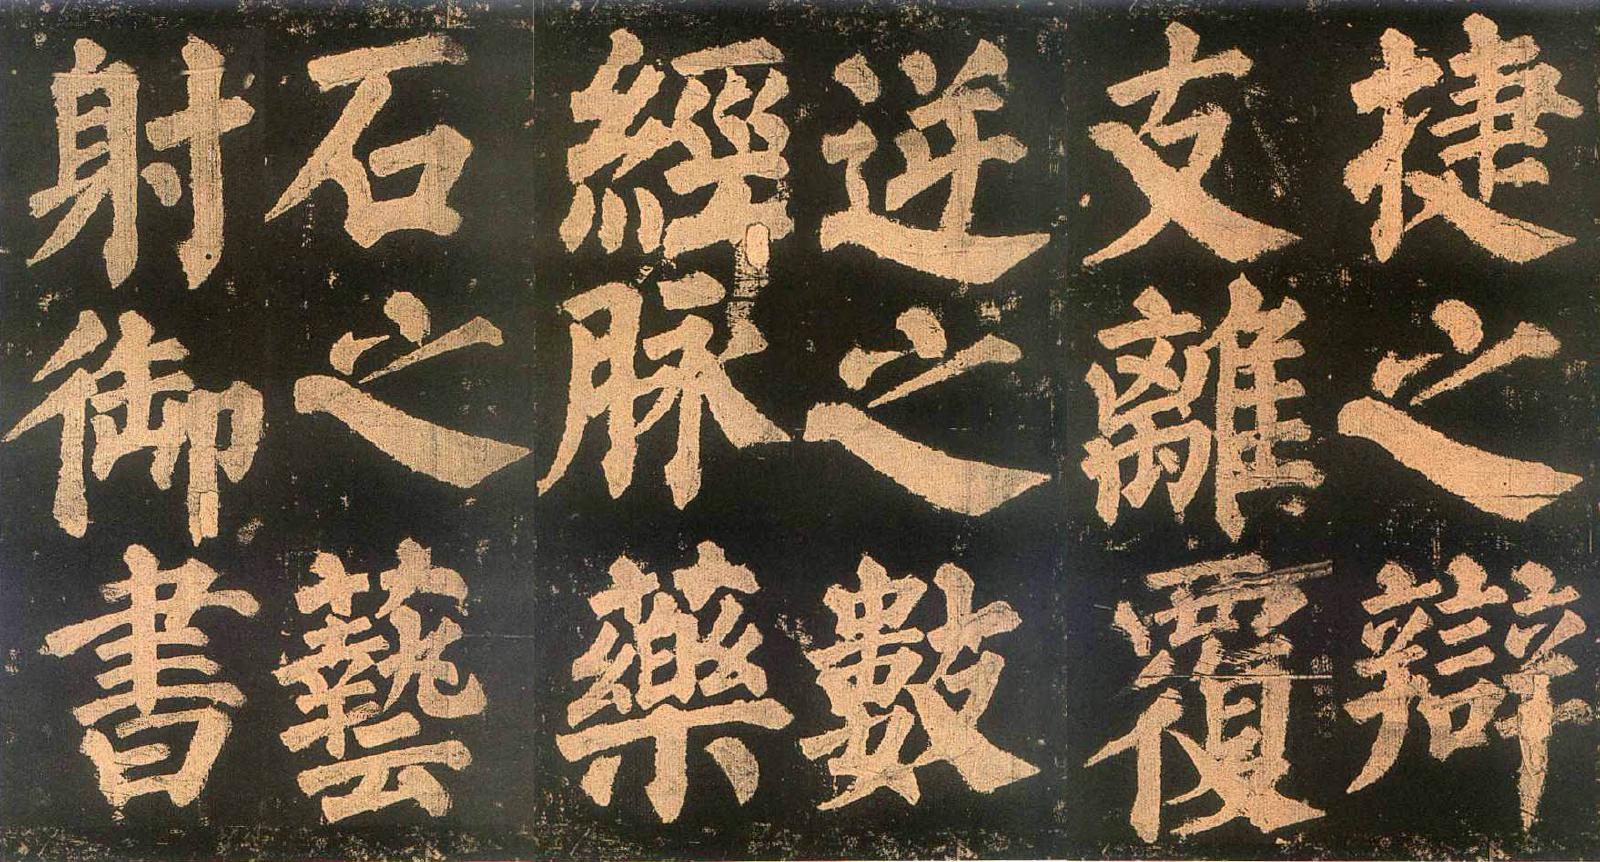 捷之辯
支離覆
逆之數
經脈藥
石之藝
射御書